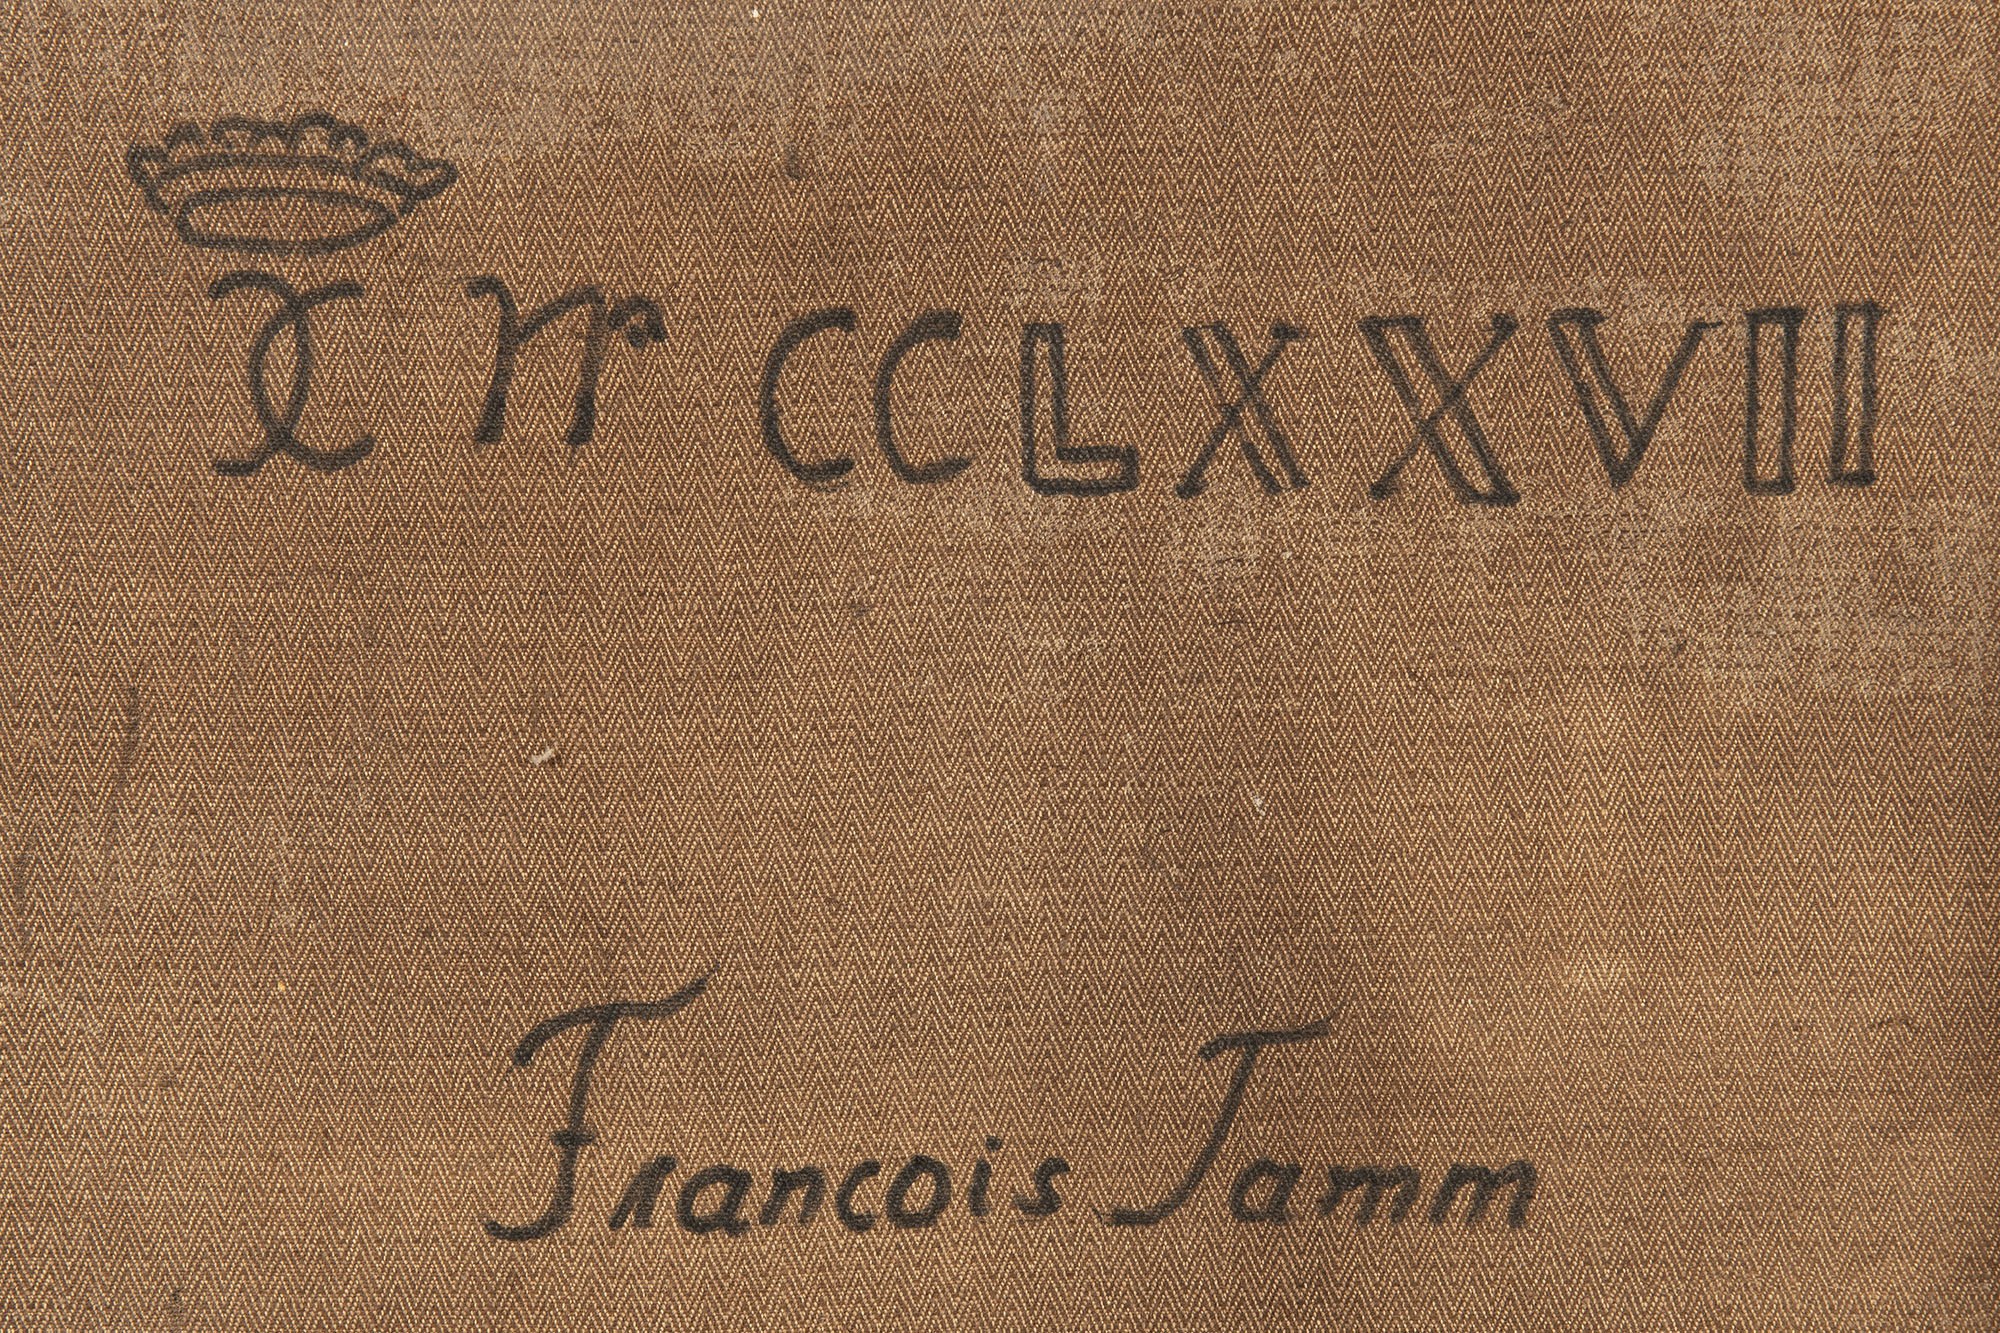 Nr CCLXXVII
Francois Tamm